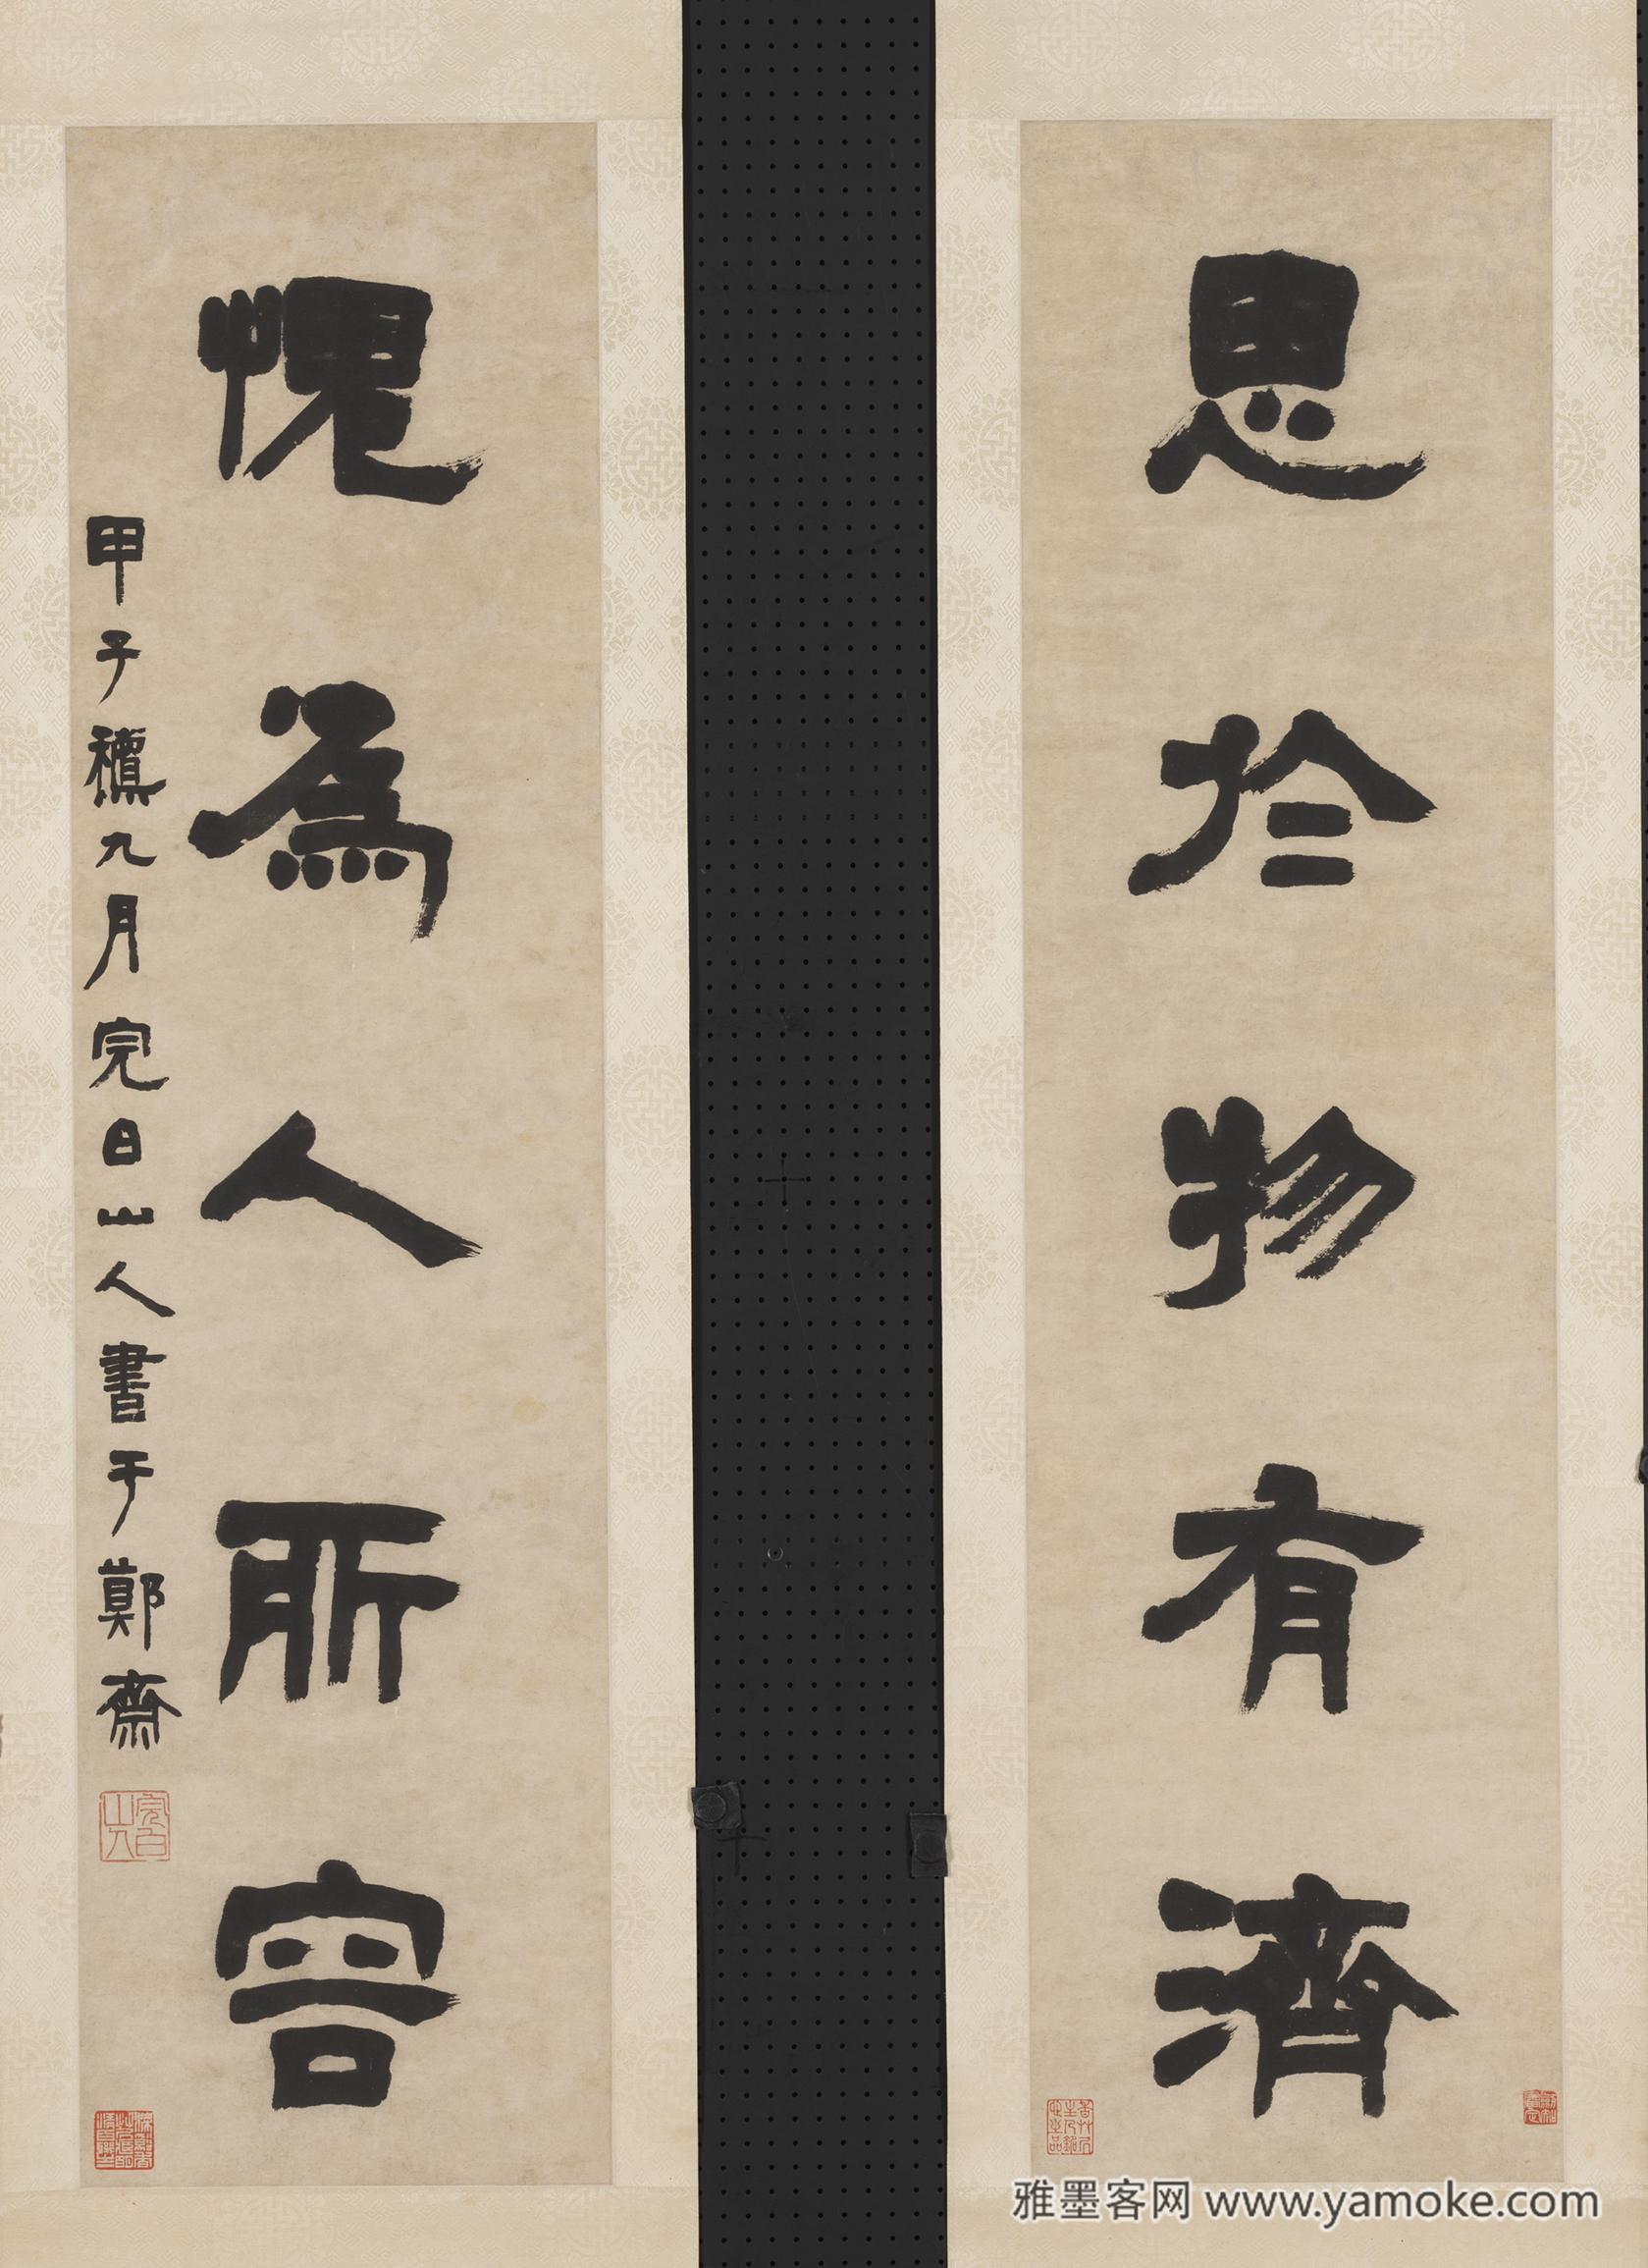 思於物有濟
愧為人所容
甲子穐九月完白山人書于鄭齋
完白山人
雅墨客网 www.yamoke.com